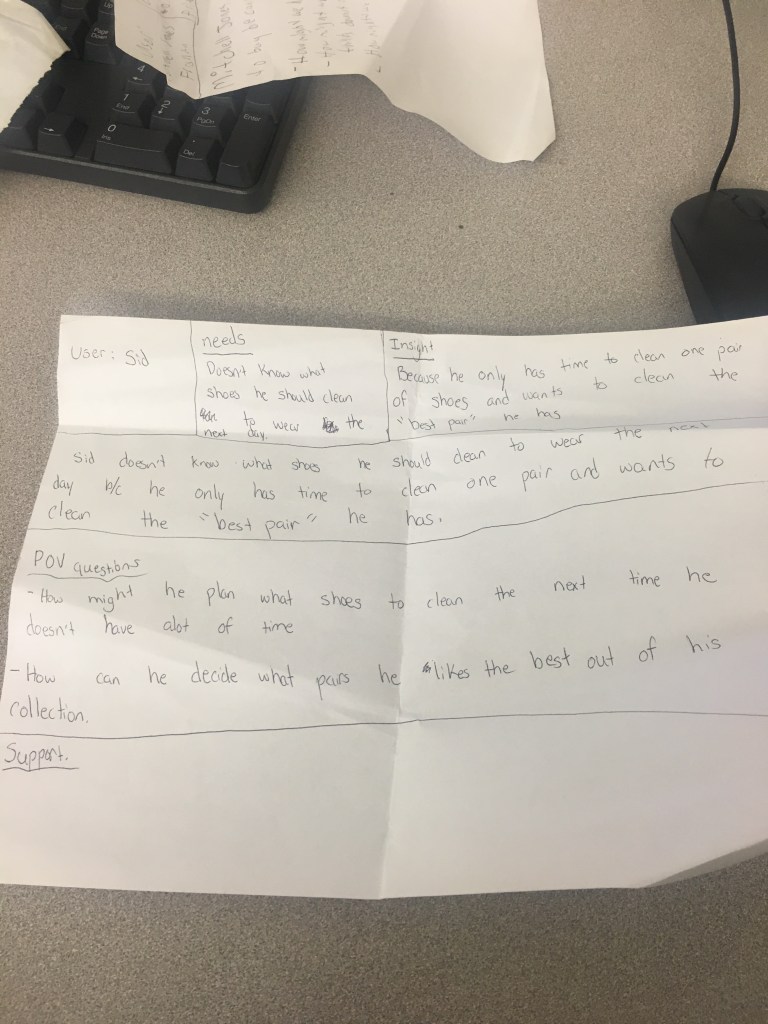 Page
Down
4
1
End
2
3
PgDn
Enter
0
Ins
.
Del
Mitchell Jones
to buy because
User: Sid
needs
Doesn't know what
shoes he should clean
to wear the
next day.
Insight
Because he only has time to clean one pair
of shoes and wants to clean the
"best pair" he has
Sid doesn't know what shoes he should clean to wear the next
day b/c he only has time to clean one pair and wants to
clean the "best pair" he has.
POV questions
- How might he plan what shoes to clean the next time he
doesn't have alot of time
- How can he decide what pairs he likes the best out of his
collection.
Support.